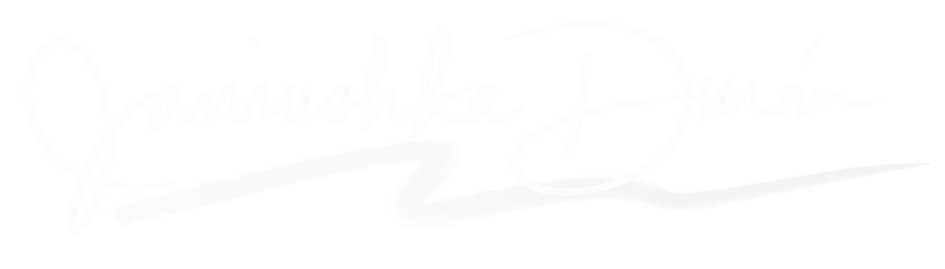 Janiushka Durán